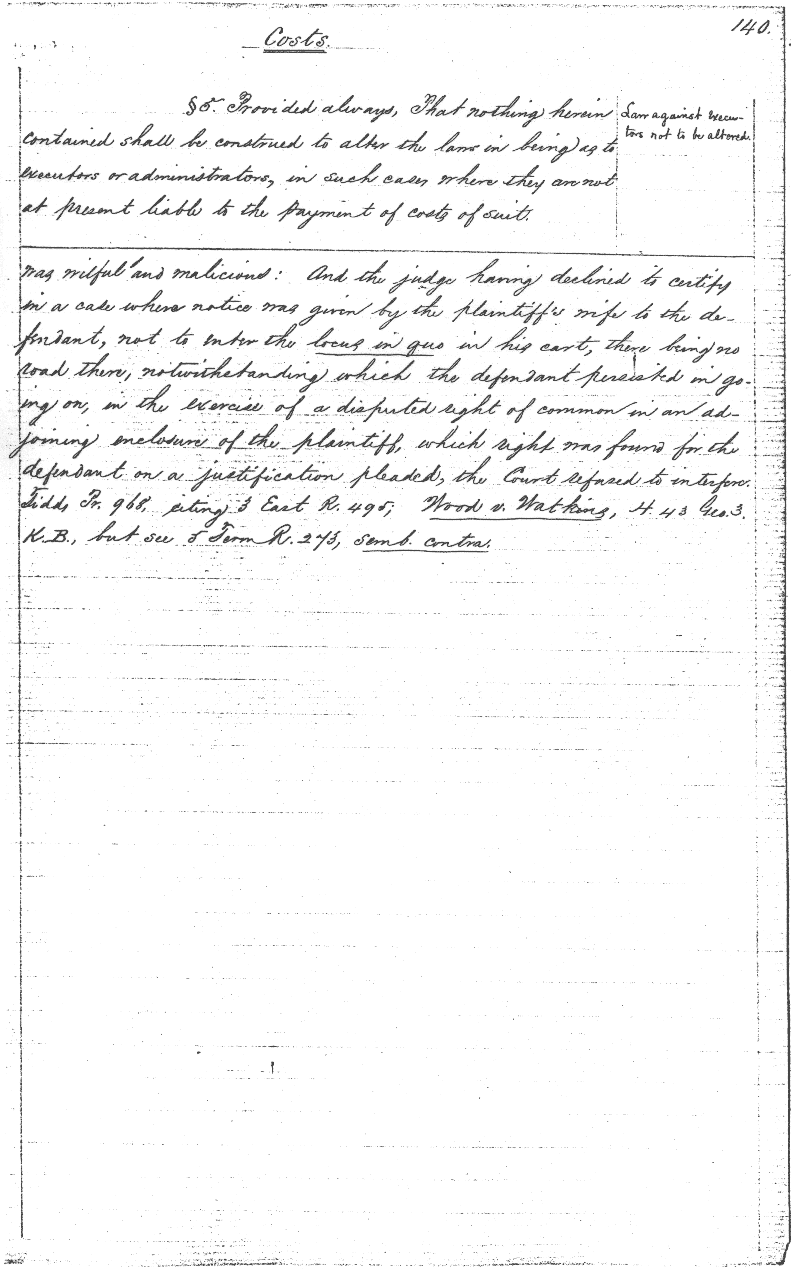 140.
Costs.
§5. Provided always, That nothing herein
contained shall be construed to alter the laws in being as to
executors or administrators, in such cases where they are not
at present liable to the payment of costs of suit.
Law against execu-
tors not to be altered.
was wilful and malicious: And the judge having declined to certify
in a case where notice was given by the plaintiff's wife to the de-
fendant, not to enter the locus in quo in his cart, there being no
road there, notwithstanding which the defendant persisted in go-
ing on, in the exercise of a disputed right of common in an ad-
joining enclosure of the plaintiff, which right was found for the
defendant on a justification pleaded, the Court refused to interfere.
Tidds Pr. 968, citing 3 East R. 495; Wood v. Watkins, H. 43 Geo. 3.
K.B., but see 5 Term R. 273, semb. contra.